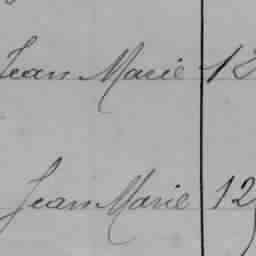 Jean Marie 12
Jean Marie 12